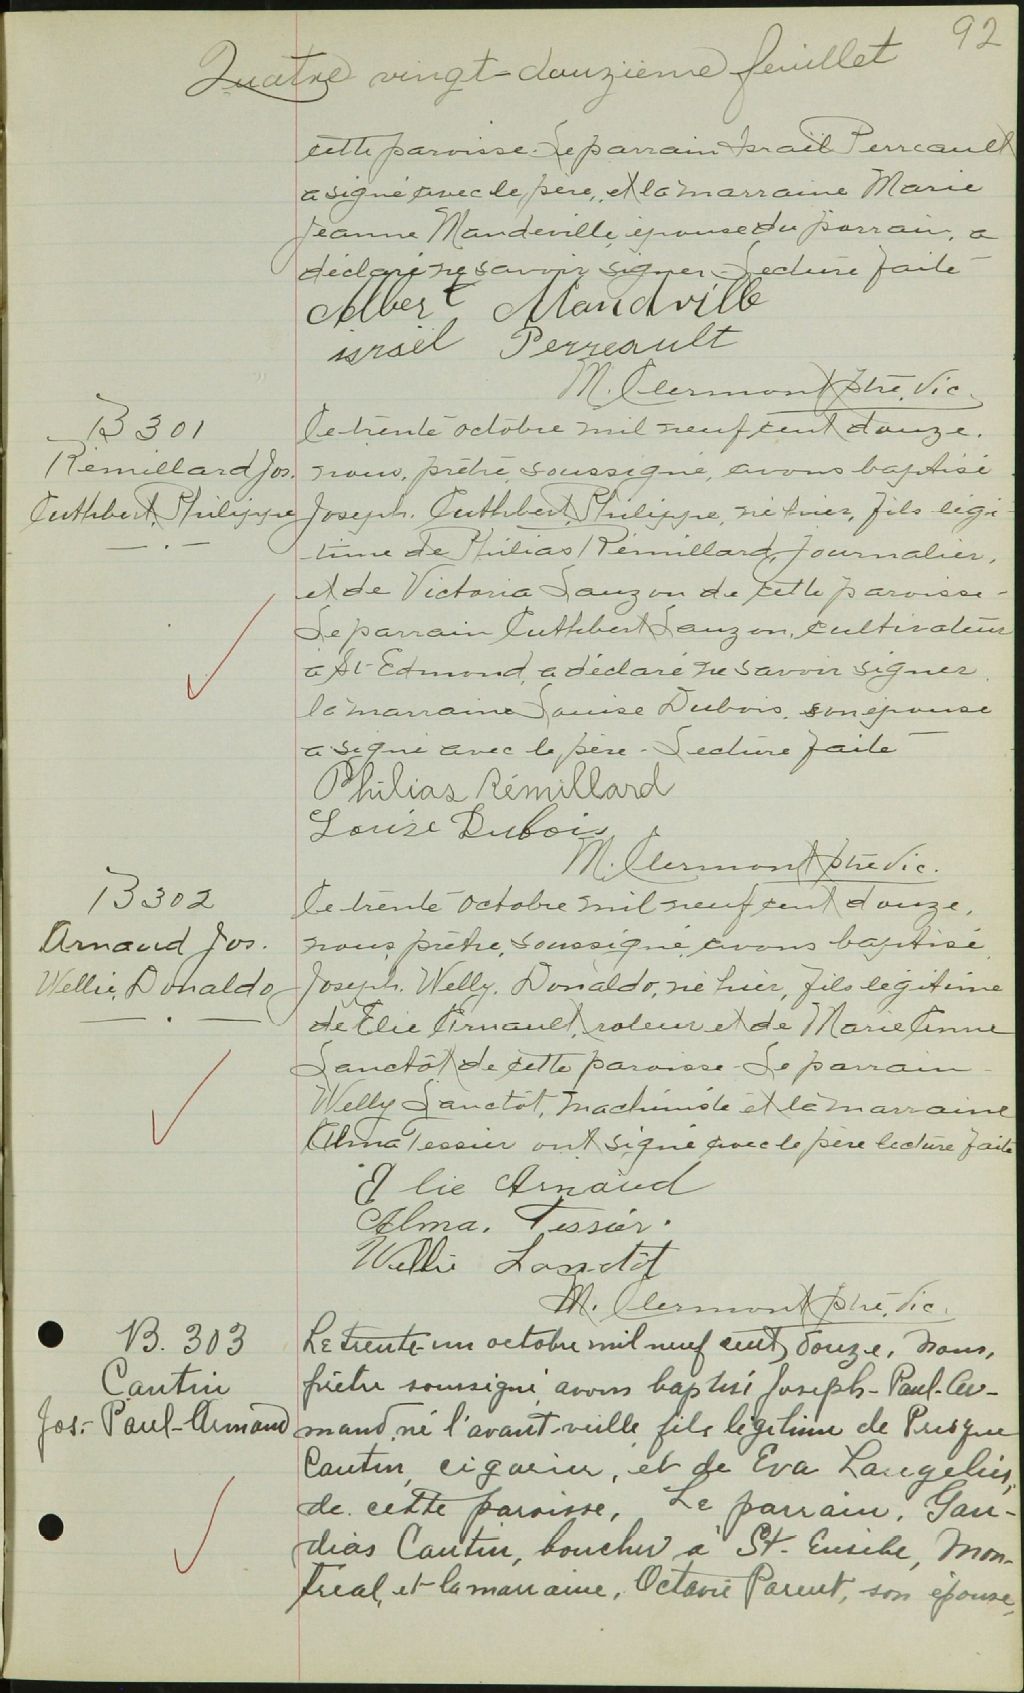 92
Quatre vingt-douzième feuillet
cette paroisse - Le parrain Israël Perreault
a signé avec le père, et la marraine Marie
Jeanne Mandeville, épouse du parrain, a
déclaré ne savoir signer. Lecture faite -
Albert Mandville
israël Perreault
M. Clermont, ptre, vic.
B 301
Rémillard Jos.
Cuthbert, Philippe
Le trente octobre mil neuf cent douze,
nous, prêtre, soussigné, avons baptisé
Joseph, Cuthbert, Philippe, né hier, fils légi-
time de Philias Rémillard, Journalier,
et de Victoria Lauzon de cette paroisse -
Le parrain Cuthbert Lauzon, cultivateur
à St-Edmond, a déclaré ne savoir signer,
la marraine Louise Dubois, son épouse
a signé avec le père - Lecture faite -
Philias Rémillard
Louise Dubois
M. Clermont, ptre vic.
B 302
Arnaud Jos.
Wellie, Donaldo
Le trente octobre mil neuf cent douze,
nous, prêtre, soussigné, avons baptisé
Joseph, Welly, Donaldo, né hier, fils légitime
de Elie Arnault, roleur et de Marie Anne
Lanctôt de cette paroisse - Le parrain
Welly Lanctôt, machiniste et la marraine
Alma Tessier ont signé avec le père lecture faite
Elie Arnaud
Alma. Tessier.
Wellie Lanctôt
M. Clermont, ptre, vic.
B. 303
Cantin
Jos.- Paul-Armand
Le trente-un octobre mil neuf cent douze, nous,
prêtre soussigné avons baptisé Joseph-Paul-Ar-
mand, né l'avant-veille, fils légitime de
Cantin, cigarier, et de Eva Langelier,
de cette paroisse, Le parrain, Gau-
dias Cantin, boucher à St-Eusèbe, Mon-
treal, et la marraine, Octavie Parent, son épouse,